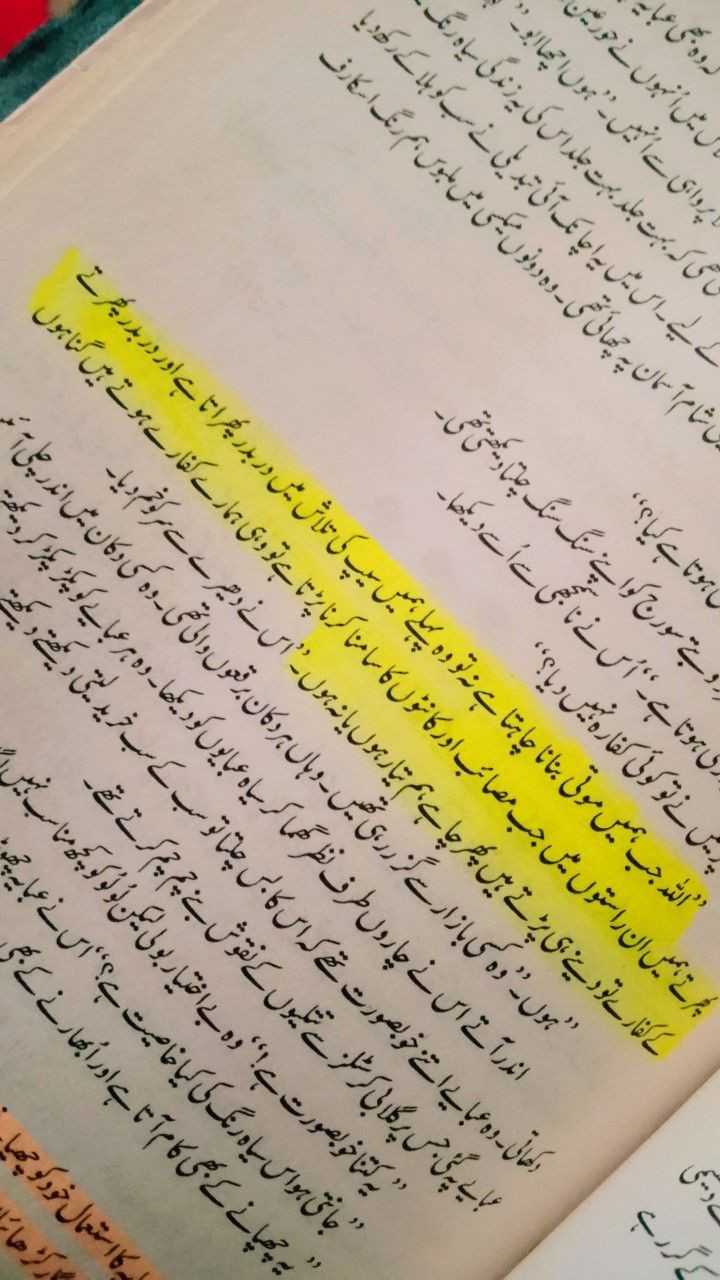 کہ وہ بھی عبایہ
میں انہوں نے حور عین
لا پرواہی سے انہیں۔ "ہوں اچھا ابو۔"
تھی کہ بہت جلد بہت جلد اس کی یہ زندگی سیاہ رنگ
کے لیے۔ اس میں یہ اچانک آئی تبدیلی نے سب کو ہلا کے رکھ دیا
شام آسمان پہ چھائی تھی۔ وہ دونوں میکسی میں ملبوس ہم رنگ اسکارف
ہوتا ہے کیا؟"
ڈوبتے سورج کو اپنے سنگ سنگ چلتا دیکھتی تھی۔
ہوتا ہے۔" اُس نے ناسمجھی سے اُسے دیکھا۔
پر میں نے تو کوئی کفارہ نہیں دیا؟"
"اللہ جب ہمیں موتی بنانا چاہتا ہے نہ تو وہ پہلے ہمیں سیپ کی تلاش میں در بدر پھراتا ہے اور در بدر پھرتے
پھرتے ہمیں ان راستوں میں جب مصائب اور کانٹوں کا سامنا کرنا پڑتا ہے تو وہی ہمارے کفارے ہوتے ہیں گناہوں
کے کفارے تو دینے ہی پڑتے ہیں پھر چاہے ہم تیار ہوں یا نہ ہوں۔" اس نے دھیرے سے سر کو خم دیا۔
"ہوں۔" وہ کسی بازار سے گزر رہی تھیں۔ وہاں ہر دکان برقعوں والی تھی۔ وہ کسی دکان میں اندر چلی آئی
اندر آتے اس نے چاروں طرف نظر گھما کر سیاہ عبایوں کو دیکھا۔ وہ ہر عبایے کو پکڑ پکڑ کر دیکھتے
دکھاتی۔ وہ عبایے اتنے خوبصورت تھے کہ اس کا بس چلتا تو سب کے سب خرید لیتی دیکھتے دیکھتے
عبایے پہ گئی جس پر گلابی کرسٹلز سے تتلیوں کے نقوش بنے چم چم کرتے تھے۔
"یہ کتنا خوبصورت ہے!" وہ بے اختیار بولی لیکن لُولُو کو کچھ مناسب نہیں
"جانتی ہو اس سیاہ رنگ کی کیا خاصیت ہے؟" اس نے عبایہ
"یہ چھپانے کے بھی کام آتا ہے اور اُبھارنے کے بھی
کا استعمال خود کو چھپا